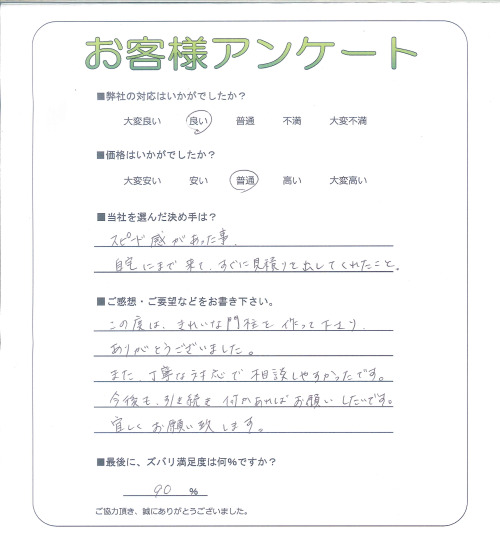 お客様アンケート
■弊社の対応はいかがでしたか？
大変良い 良い 普通 不満 大変不満
■価格はいかがでしたか？
大変安い 安い 普通 高い 大変高い
■当社を選んだ決め手は？
スピード感があった事、
自宅にまで来て、すぐに見積りを出してくれたこと。
■ご感想・ご要望などをお書き下さい。
この度は、きれいな門柱を作って下さり、
ありがとうございました。
また、丁寧な対応で相談しやすかったです。
今後も、引き続き何かあればお願いしたいです。
宜しくお願い致します。
■最後に、ズバリ満足度は何%ですか？
90 %
ご協力頂き、誠にありがとうございました。